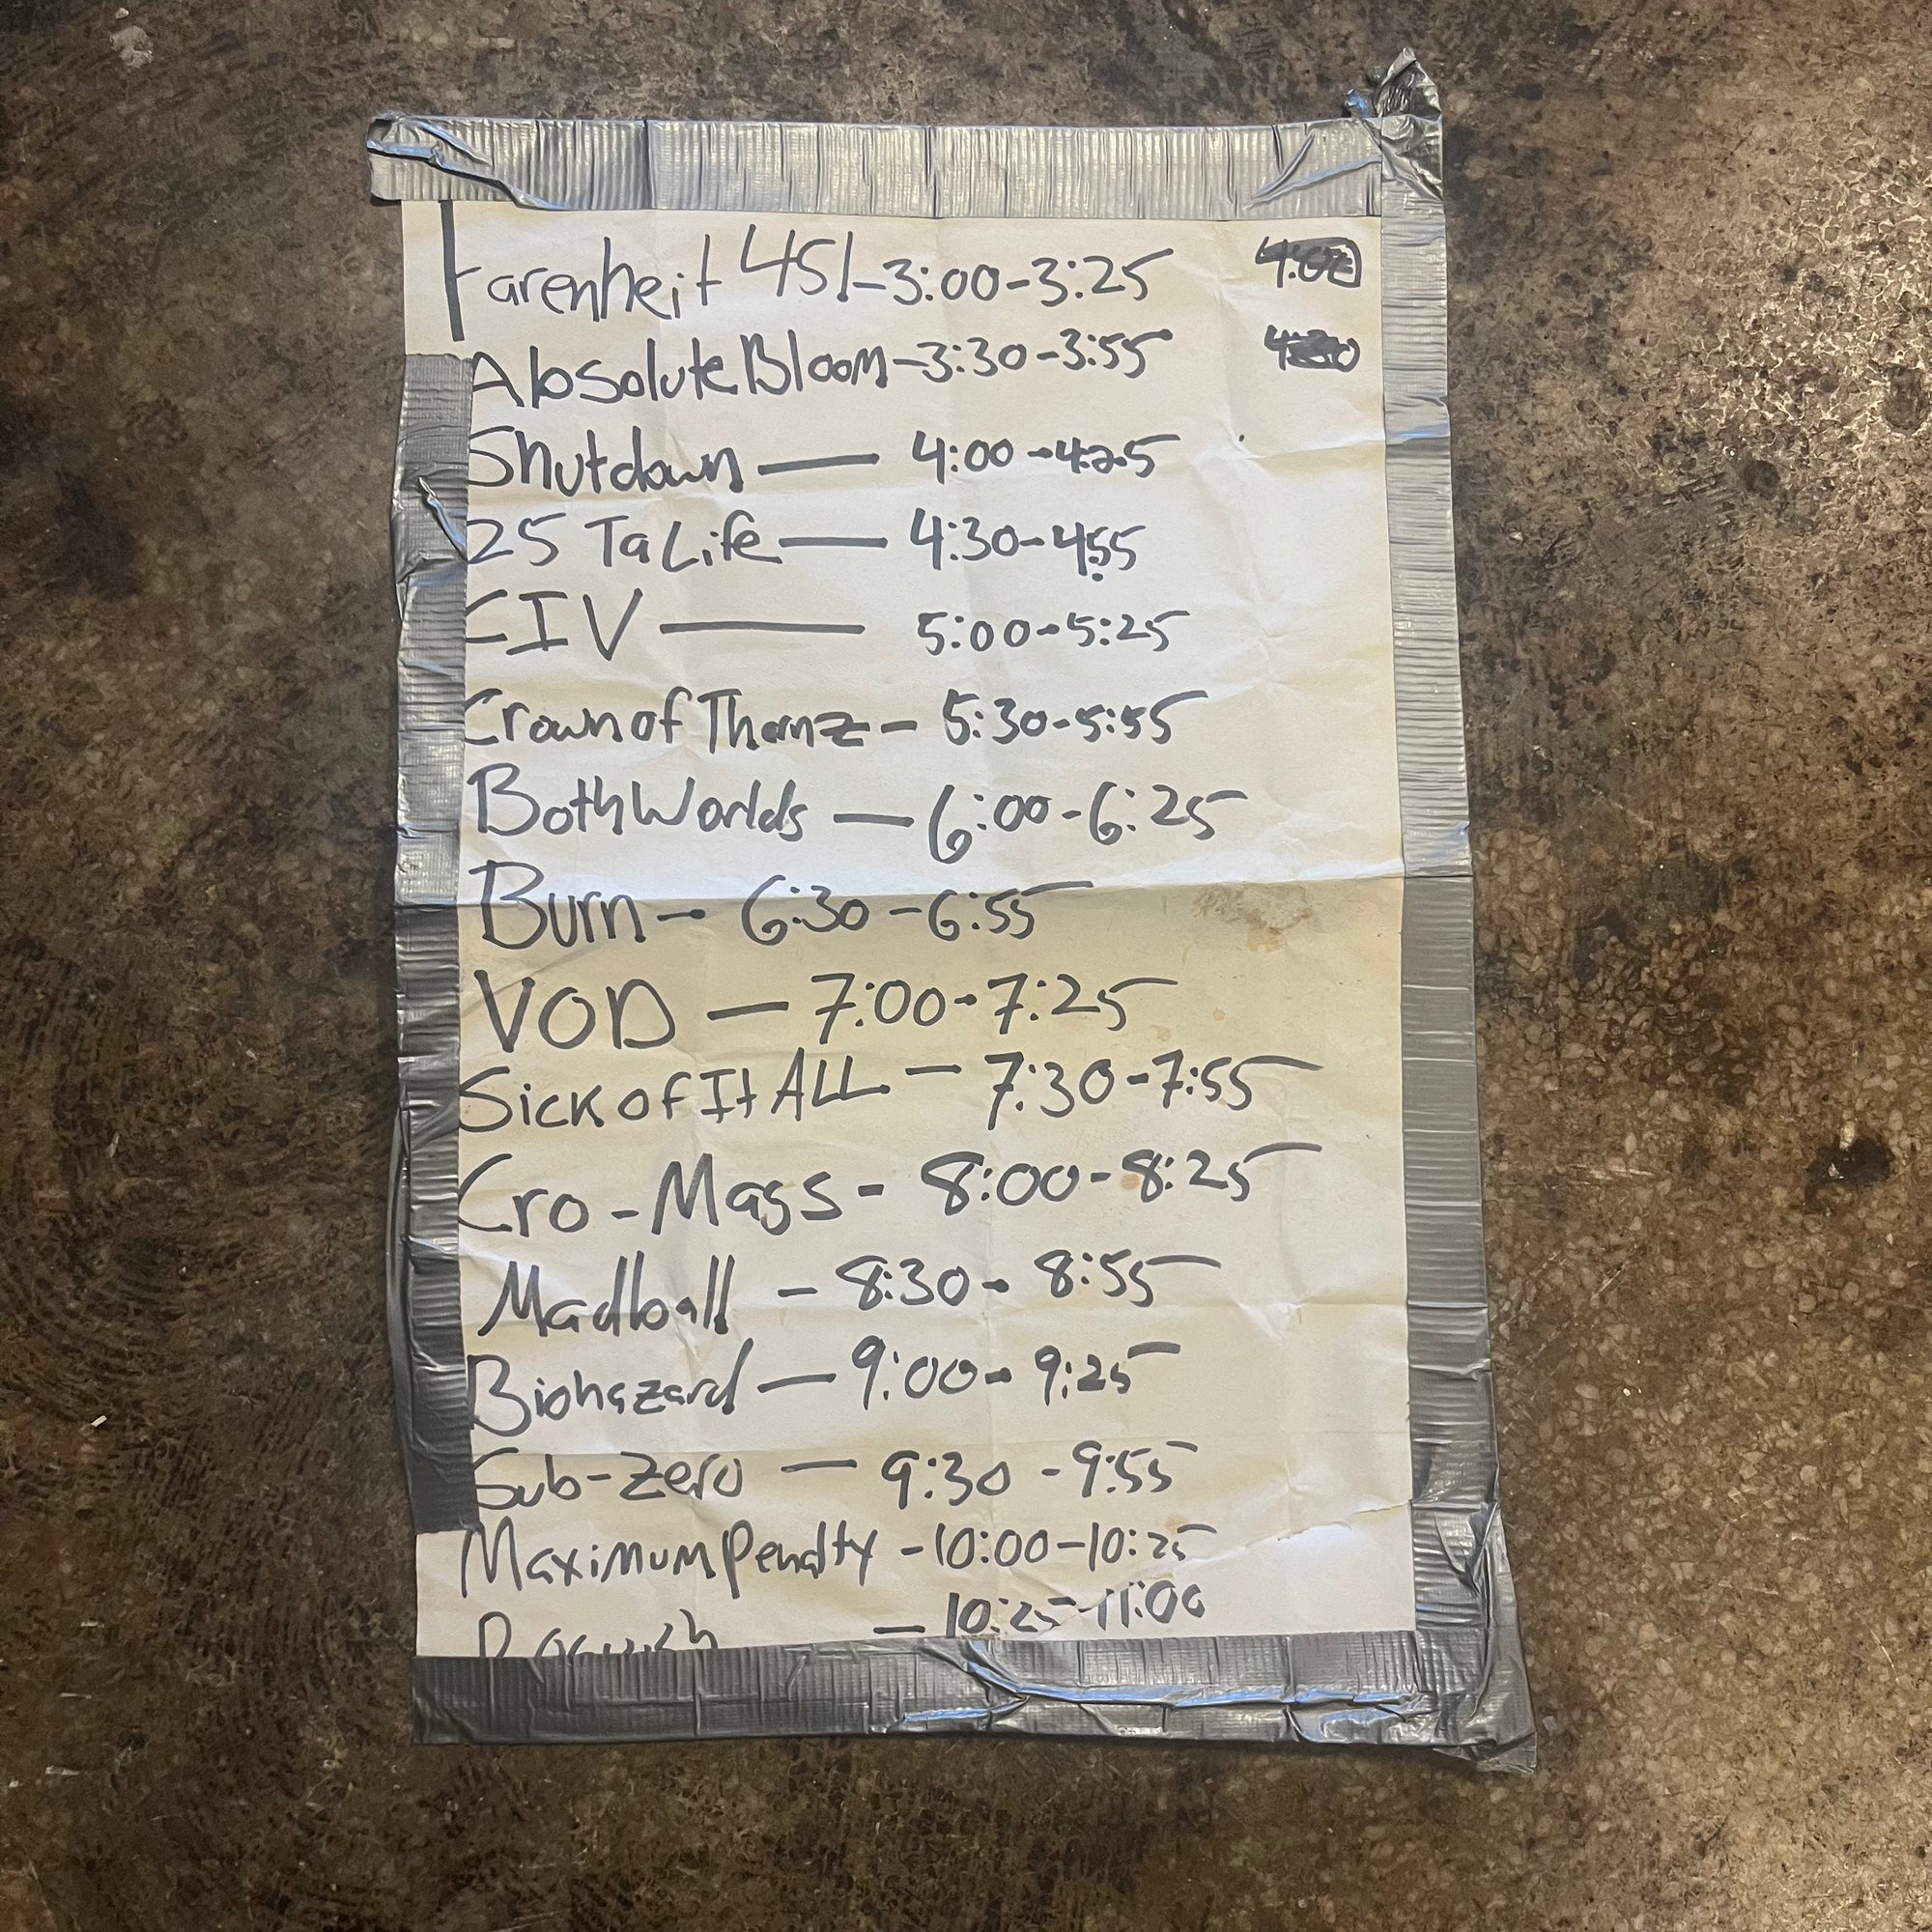 Farenheit 451-3:00-3:25
Absolute Bloom-3:30-3:55
Shutdown — 4:00-4:25
25 Ta Life — 4:30-4:55
CIV — 5:00-5:25
Crown of Thornz - 5:30-5:55
Both Worlds — 6:00-6:25
Burn - 6:30-6:55
VOD — 7:00-7:25
Sick of It ALL - 7:30-7:55
Cro-Mags - 8:00-8:25
Madball - 8:30-8:55
Biohazard — 9:00-9:25
Sub-Zero — 9:30-9:55
Maximum Penalty -10:00-10:25
— 10:25-11:00